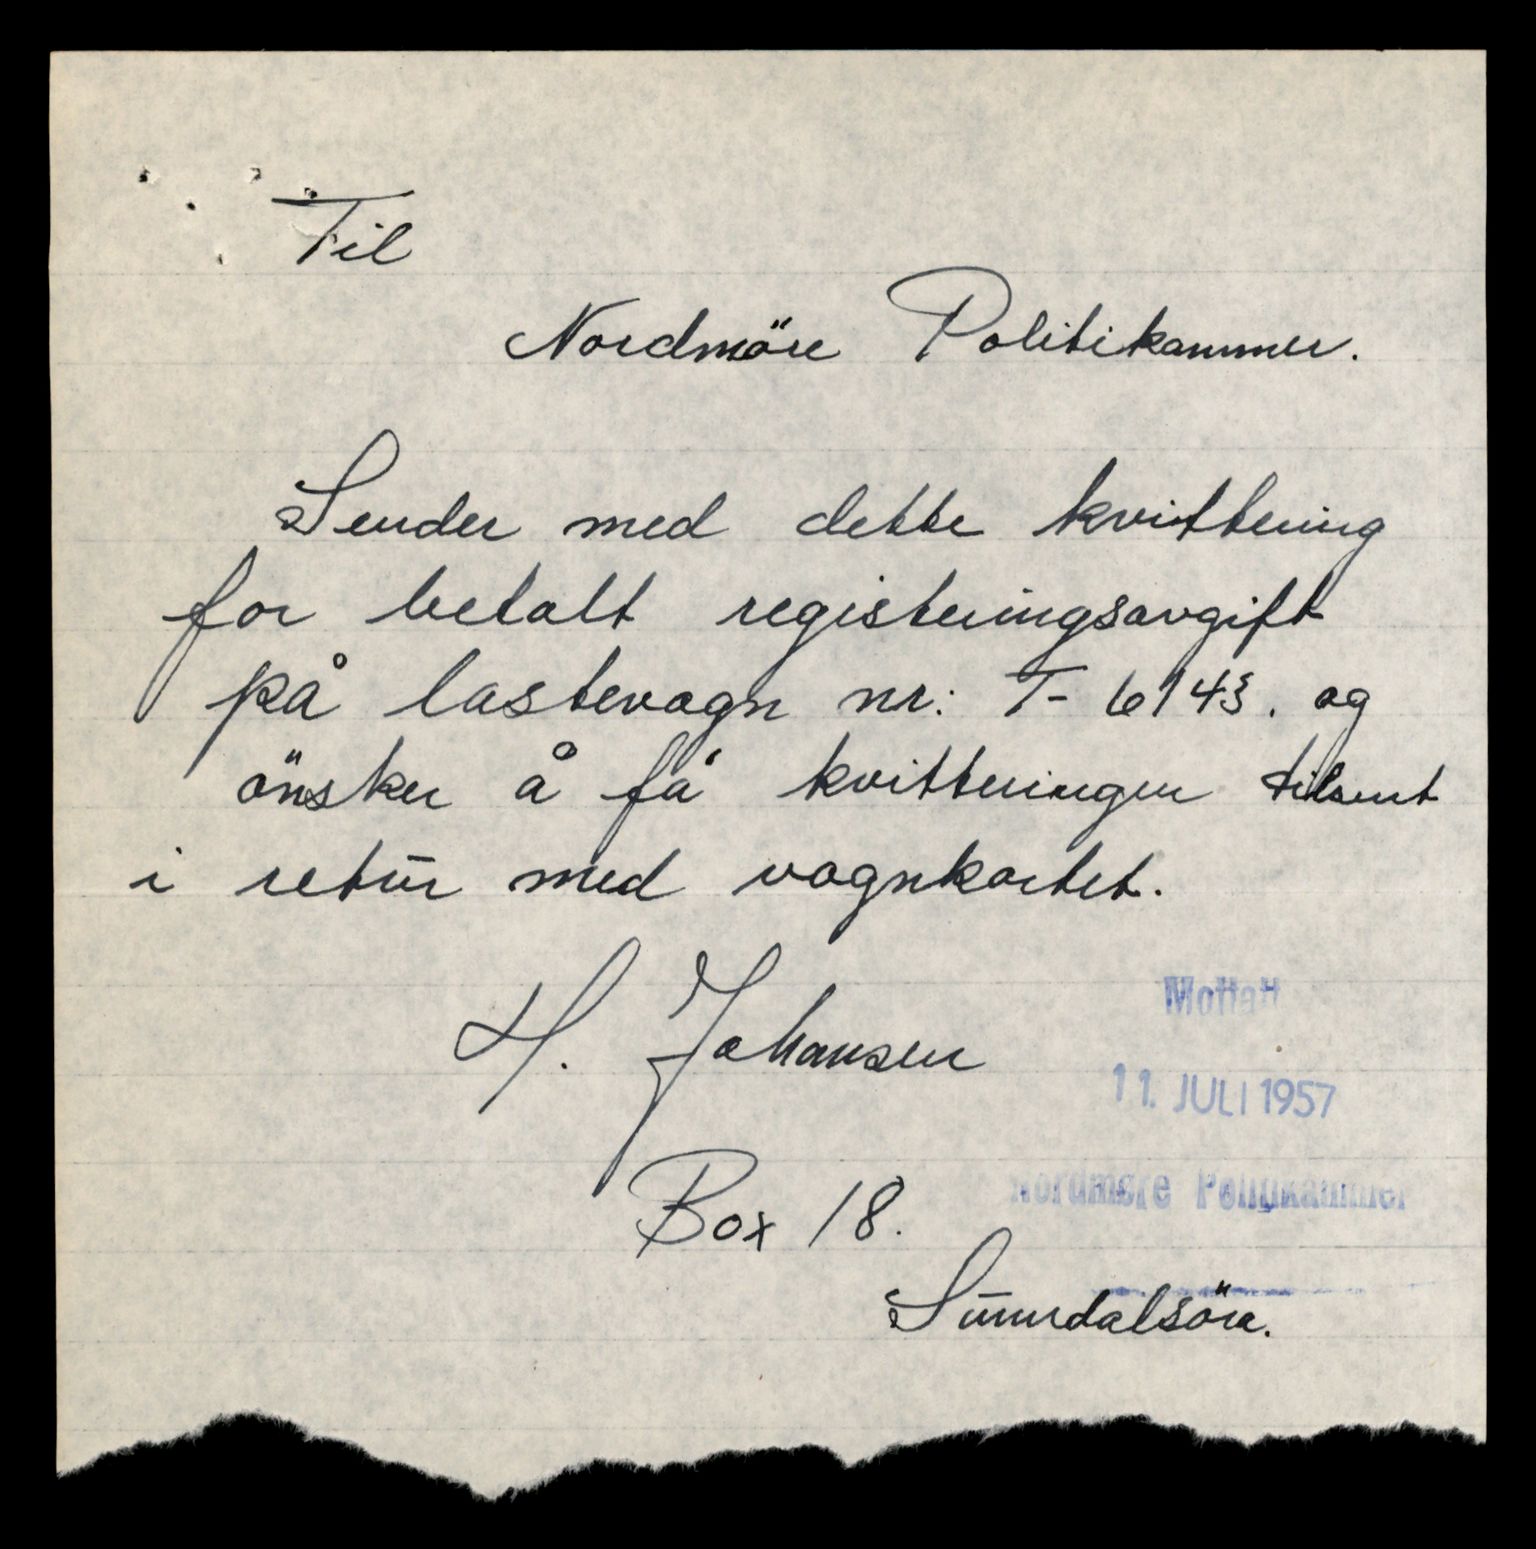 Til
Nordmöre Politikammer.
Sender med dette kvittering
for betalt registeringsavgift
på lastevogn nr: T- 6143. og
önsker å få kvitteringen tilsent
i retur med vognkortet.
H. Johansen
Mottatt
11. JULI 1957
Box 18.
Nordmøre Politikammer
Sunndalsöra.